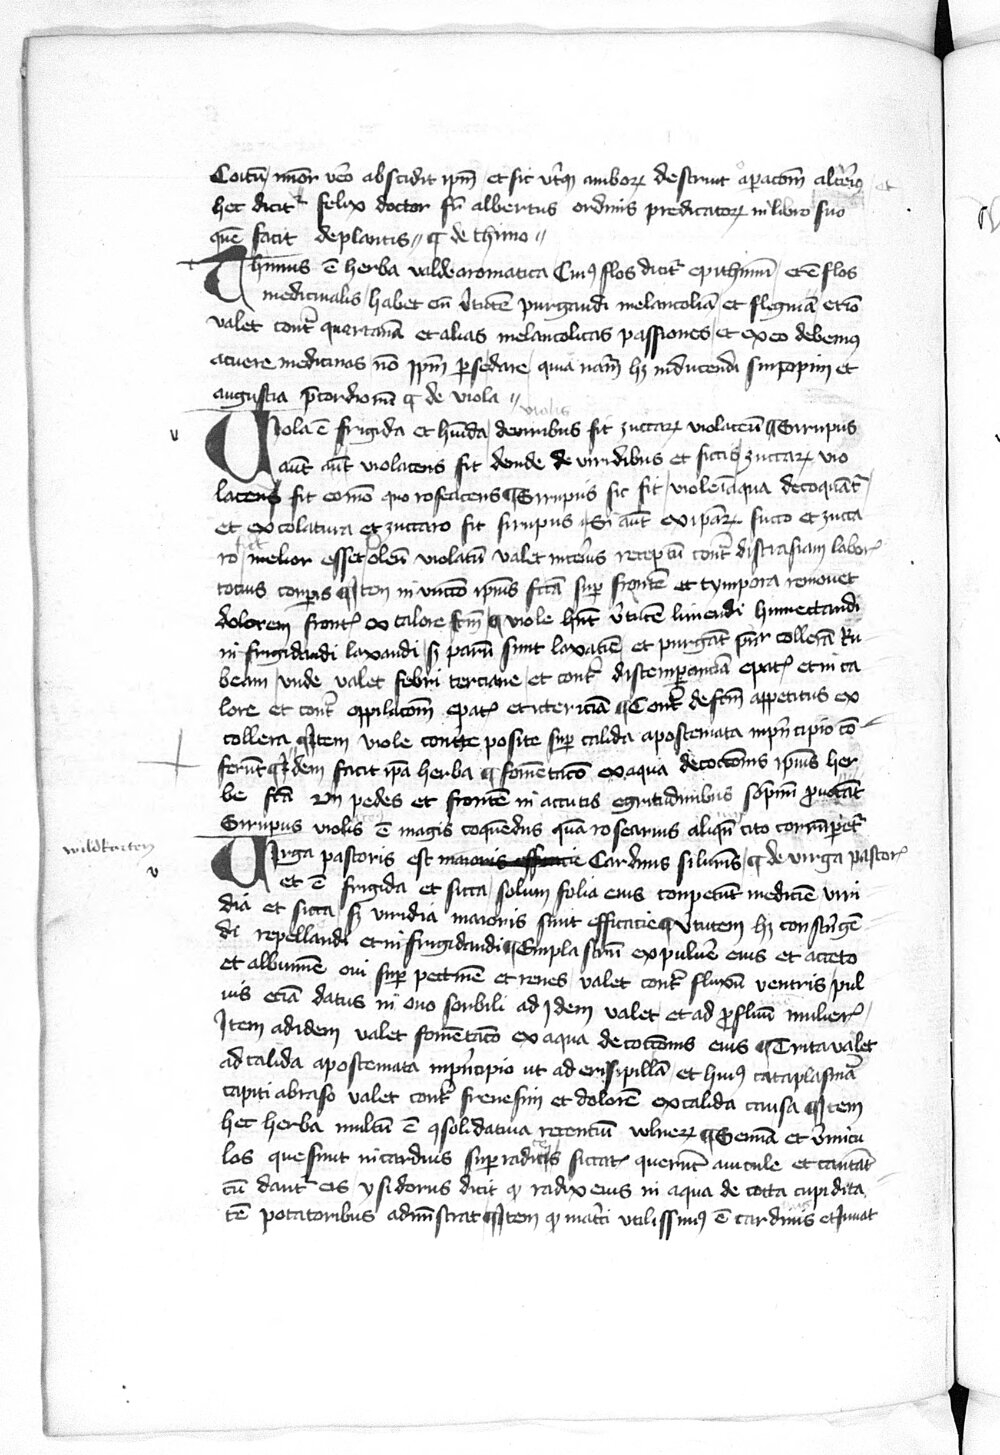 Coitū / mōr v̄o abscidit ipm̄ et sic vtrq̄ amborꝝ destruit opacōm alteriꝰ et
hec dicitr̄ felix doctor fr̄ albertus ordinis predicatorꝝ in libro suo
quē facit de plantis // ¶ de thimo //
Thimus ē herba valde aromatica Cuiꝰ flos dicitr̄ epithimū et ē flos
medicinalis / habet eī v̄tutē purgandi melancoliā et flegmā et iō
valet contr̄ quartanā et alias melancolicas passiones / et ex eo debemꝰ
acuere medicinas nō ipm̄ per se dare / quia nat̄m hꝫ inducendi sincopim et
augustia p̄cordiorū ¶ de viola //
violis
v
Viola ē frigida et hūida de viribus fit zuccarꝝ violaceū ¶ Sirupus
aūt violaceus fit deinde de viridibus et siccis / zuccarꝝ vio
laceus fit eo mō quo roseaceus ¶ Sirupus sic fit / viole ī aqua decoquāt᷑
et ex colatura et zuccaro fit sirupus // Si aūt ex ipārꝝ succo et zucca
ro / melior esset / oleū violatū valet inter̄ius receptū contr̄ discrasiam labor᷑
tocius corpis ¶ Item in vnccō ipius fcā sup̄ frontē et tympora remouet
dolorem front᷑ ex calore fcm̄ ¶ viole hn̄t v̄tutē liniendi humectandi
infrigidandi laxandi / sꝫ parū sunt laxatiē et purgāt p̄n̄r collerā Ru-
beam / vnde valet febri terciane / et contr̄ distemperanciā epat᷑ et in ca
lore et contr̄ oppilacōm epat᷑ et ictericiā ¶ Contr̄ defcm̄ appetitus ex
collera ¶ Item viole contrite posite sup̄ calida apostemata in p̄ncipio cō-
ferūt ¶ Idem facit ipā herba ¶ fomētacō ex aqua decoccōnis ipius her
be fcā circa pedes et frontē in accutis egritudinibus sopm̄ ꝓuocāt
Sirupus violis ē magis coquendus quā rosearius aliqn̄ cito corrūpet᷑
wildkarten
v
Virga pastoris est maioris efficacie Cardinis siluris / ¶ de virga pastor᷑
et ē frigida et sicca / solum folia eius conpetūt medicīe viri
dia et sicca / sꝫ viridia maioris sunt efficacie ¶ v̄tutem hꝫ constrīgē-
di repellandi et infrigidandi ¶ Emplastrū ex puluē eius et acceto
et albumīe oui sup̄ pectinē et renes / valet contr̄ fluxū ventris / pul
uis eciā datus in ouo sorbili ad idem valet / et ad ꝓfluuiū mulier᷑ /
Item ad idem valet fomētacō ex aqua decoccōnis eius ¶ Trita valet
ad calida apostemata in p̄ncipio ut ad erisipillā / et huiꝰ cataplasmā
capiti abraso valet contr̄ frenesim et dolorē ex calida causa ¶ Item
hec herba multū ē ꝯsolidatiua recentiū vulnerꝝ ¶ Semīa et v̄micu
los que sunt in carduis sup̄ radicis siccat᷑ querūt auicule et cantāt
cū dant᷑ eis ysidorus dicit ꝙ radix eius in aqua decocta cupidita
tē potatoribus admīstrat ¶ Item ꝙ matri vtilissimꝰ ē cardinis et Juuat